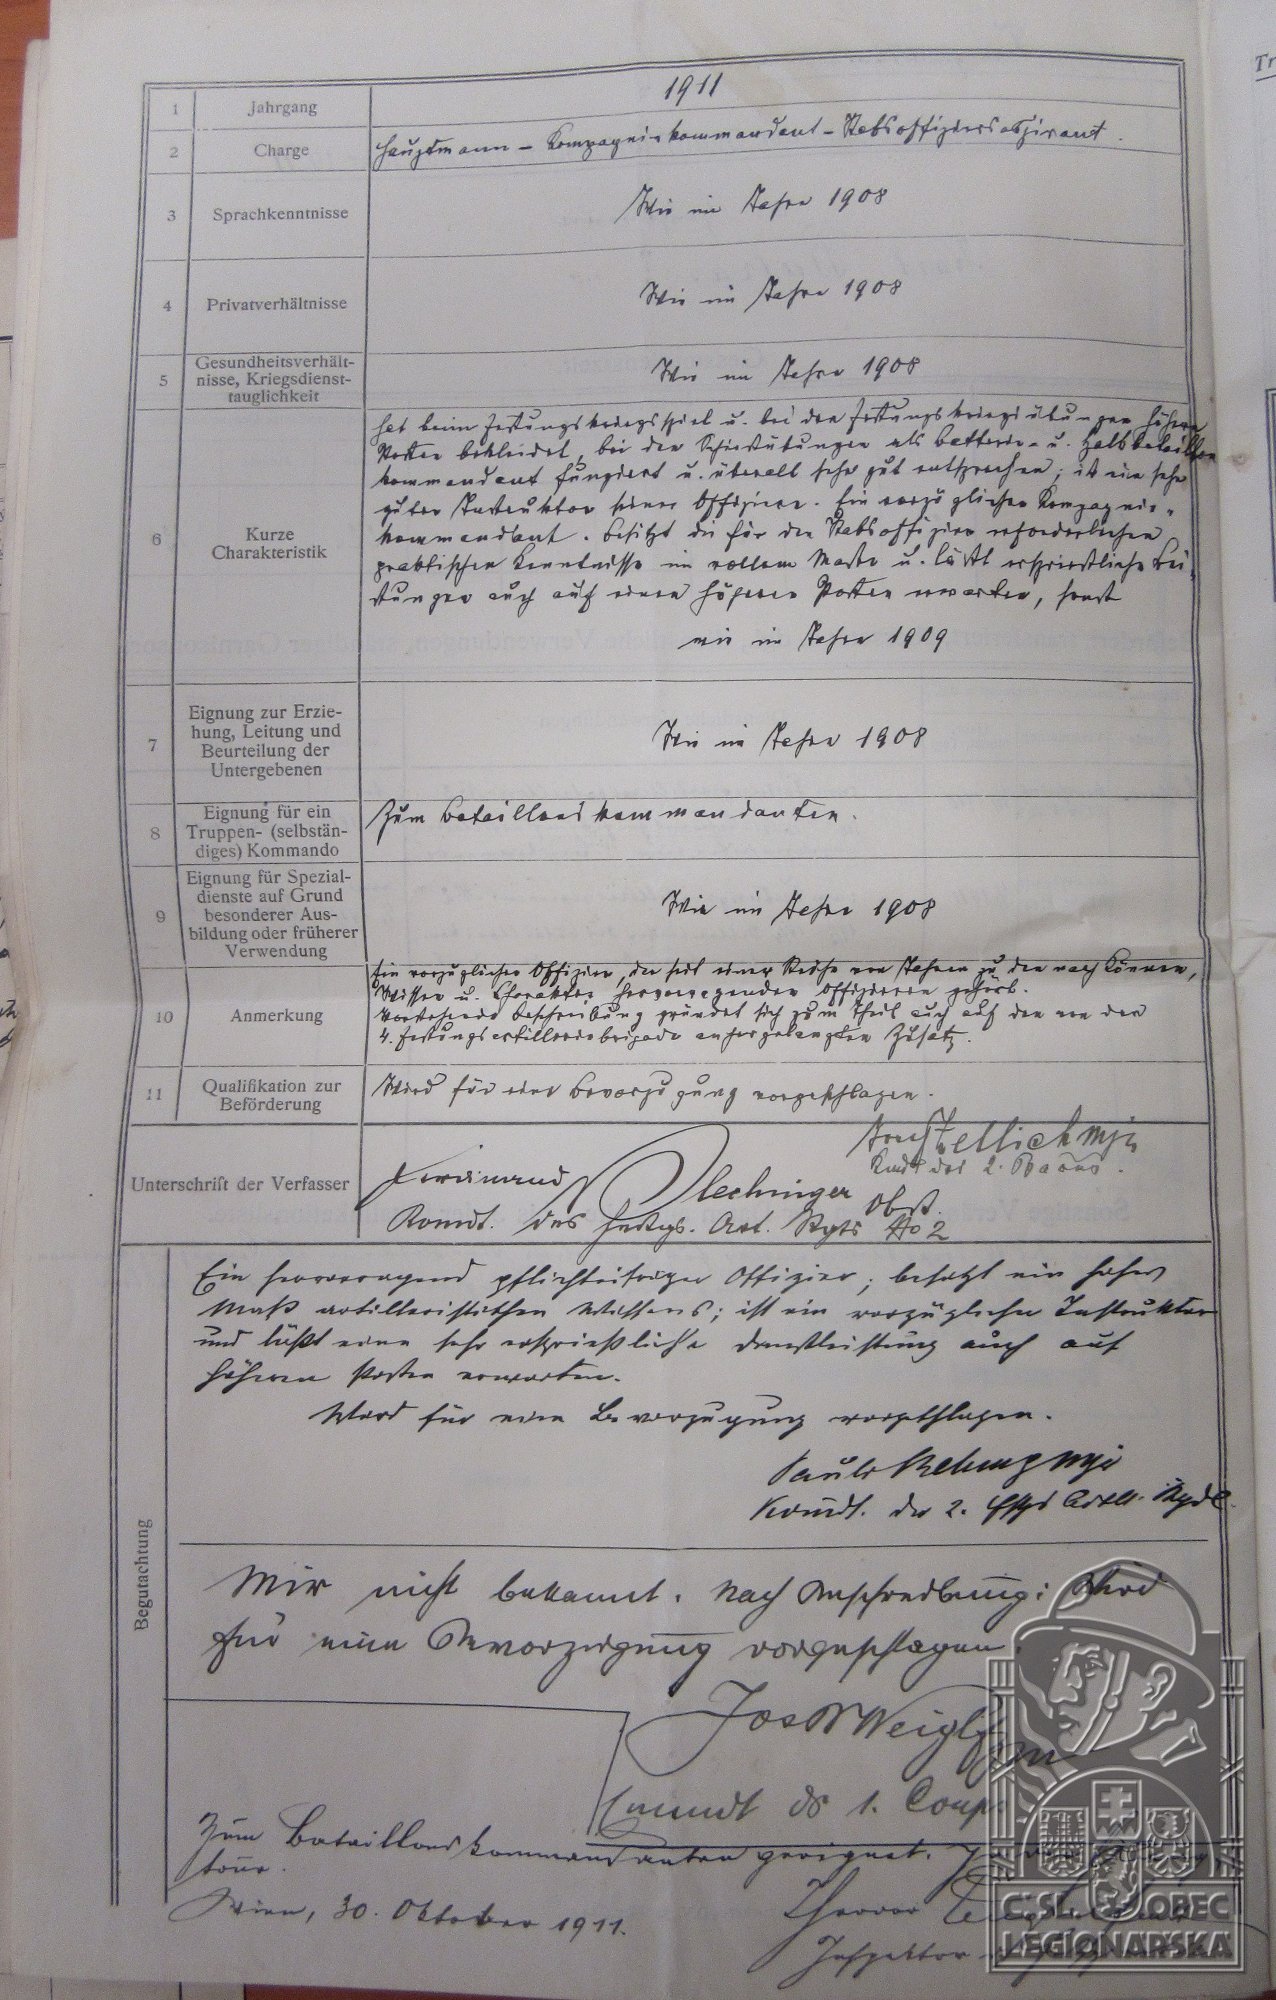 1 Jahrgang 1911
2 Charge Hauptmann – Kompagniekommandant – Stabsoffiziersaspirant.
3 Sprachkenntnisse Wie im Jahre 1908
4 Privatverhältnisse Wie im Jahre 1908
5 Gesundheitsverhält-
nisse, Kriegsdienst-
tauglichkeit
Wie im Jahre 1908
6 Kurze
Charakteristik
hat beim Festungskriegsspiel u. bei den Festungskriegsübungen höhere
Posten bekleidet, bei den Schiessübungen als Batterie- u. Halbbataillons
kommandant fungiert u. überall sehr gut entsprochen; ist ein sehr
guter Instruktor seiner Offiziere. Ein vorzüglicher Kompagnie-
kommandant. Besitzt die für den Stabsoffizier erforderlichen
praktischen Kenntnisse im vollem Maße u. läßt ersprießliche Lei-
stungen auch auf einen höheren Posten erwarten, sonst
wie im Jahre 1909
7 Eignung zur Erzie-
hung, Leitung und
Beurteilung der
Untergebenen
Wie im Jahre 1908
8 Eignung für ein
Truppen- (selbstän-
diges) Kommando
Zum Bataillonskommandanten.
9 Eignung für Spezial-
dienste auf Grund
besonderer Aus-
bildung oder früherer
Verwendung
Wie im Jahre 1908
10 Anmerkung
Ein vorzüglicher Offizier, der seit einer Reihe von Jahren zu den nach Können,
Wissen u. Charakter hervorragenden Offizieren gehört.
Vorstehende Beschreibung gründet sich zum Theil auch auf den von der
4. Festungsartilleriebrigade anher gelangten Zusatz.
11 Qualifikation zur
Beförderung
Wird für eine Bevorzugung vorgeschlagen.
Unterschrift der Verfasser
Kmdt des 2. Baons.
Ferdinand Plechinger Obst.
Komdt. des Festgs. Art. Rgts No 2
Begutachtung
Ein hervorragend pflichteifriger Offizier; besitzt ein hohes
Maß artilleristischen Wissens; ist ein vorzüglicher Instruktor
und läßt eine sehr ersprießliche Dienstleistung auch auf
höheren Posten erwarten.
Wird für eine Bevorzugung vorgeschlagen.
Komdt. der 2. Fstgs Artll. Bgde.
Mir nicht bekannt. Nach Beschreibung: Wird
für eine Bevorzugung vorgeschlagen.
Jos Weigl
1. Corps
Zum Bataillonskommandanten geeignet.
Wien, 30. Oktober 1911.
Inspektor
ČSL. OBEC
LEGIONÁŘSKÁ